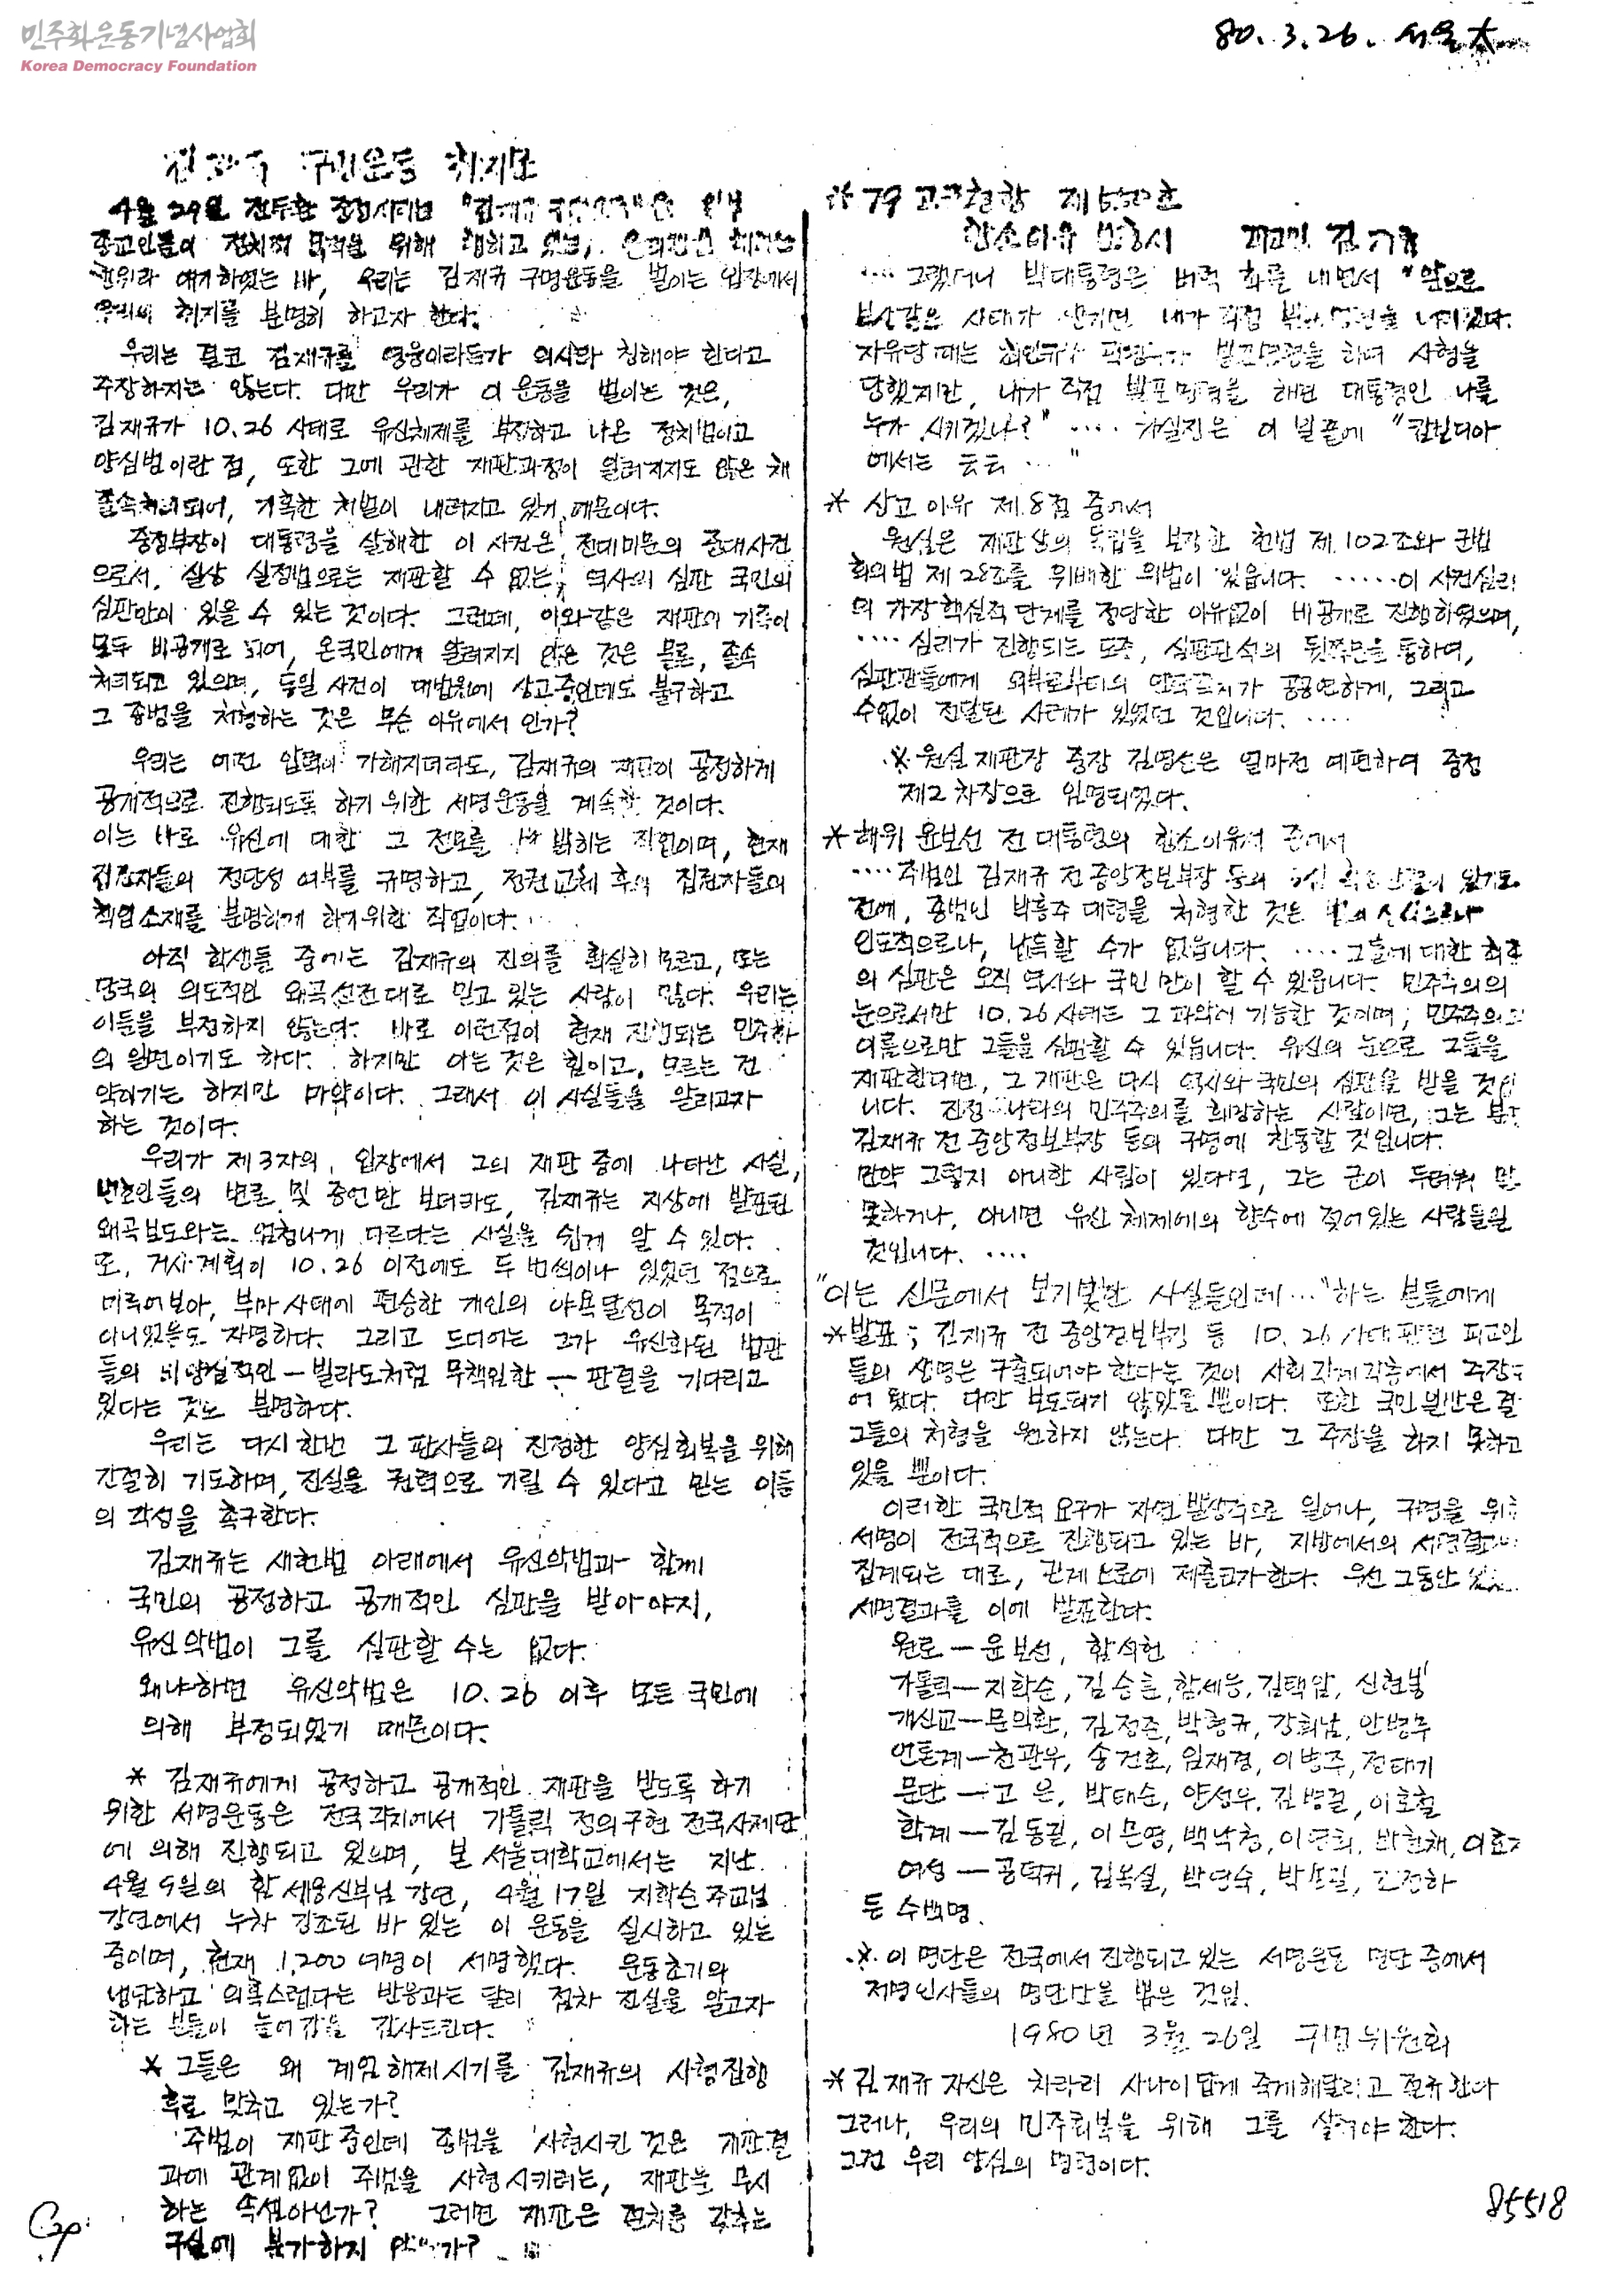 민주화운동기념사업회
Korea Democracy Foundation
80. 3. 26. 서울大
구명운동 취지문
4월 29일 전두환 중정서리는
종교인들이 정치적 목적을 위해 행하고 있는,
행위라 얘기하였는 바, 우리는 김재규 구명운동을 벌이는 입장에서
우리의 취지를 분명히 하고자 한다.
우리는 결코 김재규를 영웅이라든가 의사라 칭해야 한다고
주장하지는 않는다. 다만 우리가 이 운동을 벌이는 것은,
김재규가 10.26 사태로 유신체제를 부정하고 나온 정치범이고
양심범이란 점, 또한 그에 관한 재판과정이 알려지지도 않은 채
졸속처리되어, 가혹한 처벌이 내려지고 있기 때문이다.
중정부장이 대통령을 살해한 이 사건은 전대미문의 중대사건
으로서, 실상 실정법으로는 재판할 수 없는, 역사의 심판 국민의
심판만이 있을 수 있는 것이다. 그런데, 이와같은 재판의 기록이
모두 비공개로 되어, 온국민에게 알려지지 않은 것은 물론, 졸속
처리되고 있으며, 동일 사건이 대법원에 상고중인데도 불구하고
그 종범을 처형하는 것은 무슨 이유에서 인가?
우리는 어떤 압력이 가해지더라도, 김재규의 재판이 공정하게
공개적으로 진행되도록 하기 위한 서명운동을 계속할 것이다.
이는 바로 유신에 대한 그 전모를 밝히는 작업이며, 현재
집권자들의 정당성 여부를 규명하고, 정권교체 후의 집권자들의
책임소재를 분명하게 하기위한 작업이다.
아직 학생들 중에는 김재규의 진의를 확실히 모르고, 또는
당국의 의도적인 왜곡선전대로 믿고 있는 사람이 많다. 우리는
이들을 부정하지 않는다. 바로 이런점이 현재 진행되는 민주화
의 일면이기도 하다. 하지만 아는 것은 힘이고, 모르는 건
약이기는 하지만 마약이다. 그래서 이 사실들을 알리고자
하는 것이다.
우리가 제3자의 입장에서 그의 재판 중에 나타난 사실,
변호인들의 변론 및 증언만 보더라도, 김재규는 지상에 발표된
왜곡보도와는 엄청나게 다르다는 사실을 쉽게 알 수 있다.
또, 거사계획이 10.26 이전에도 두 번씩이나 있었던 점으로
미루어보아, 부마사태에 편승한 개인의 야욕달성이 목적이
아니었음도 자명하다. 그리고 드디어는 그가 유신화된 법관
들의 비양심적인 — 빌라도처럼 무책임한 — 판결을 기다리고
있다는 것도 분명하다.
우리는 다시 한번 그 판사들의 진정한 양심회복을 위해
간절히 기도하며, 진실을 권력으로 가릴 수 있다고 믿는 이들
의 각성을 촉구한다.
김재규는 새헌법 아래에서 유신악법과 함께
국민의 공정하고 공개적인 심판을 받아야지,
유신악법이 그를 심판할 수는 없다.
왜냐하면 유신악법은 10.26 이후 모든 국민에
의해 부정되었기 때문이다.
* 김재규에게 공정하고 공개적인 재판을 받도록 하기
위한 서명운동은 전국각지에서 가톨릭 정의구현 전국사제단
에 의해 진행되고 있으며, 본 서울대학교에서는 지난
4월 9일의 함세웅신부님 강연, 4월 17일 지학순주교님
강연에서 누차 강조된 바 있는 이 운동을 실시하고 있는
중이며, 현재 1,200 여명이 서명했다. 운동초기의
냉담하고 의혹스럽다는 반응과는 달리 점차 진실을 알고자
하는 분들이 늘어감을 감사드린다.
* 그들은 왜 계엄해제시기를 김재규의 사형집행
후로 맞추고 있는가?
주범이 재판중인데 종범을 사형시킨 것은 재판결
과에 관계없이 주범을 사형시키려는, 재판을 무시
하는 속셈아닌가? 그러면 재판은 편치를 갖추는
구실에 불가하지 않은가?
※ 79 고군형항 제550호
항소이유 보충서 피고인 김재규
.... 그랬더니 박대통령은 버럭 화를 내면서 "앞으로
부산같은 사태가 생기면 내가 직접 발포명령을 내리겠다.
자유당 때는 최인규나 곽영주가 발포명령을 하여 사형을
당했지만, 내가 직접 발포명령을 하면 대통령인 나를
누가 시키겠나?" .... 차실장은 이 말끝에 "캄보디아
에서는 云云 ... "
* 상고이유 제8점 중에서
원심은 재판상의 독립을 보장한 헌법 제102조와 군법
회의법 제28조를 위배한 위법이 있읍니다. ......이 사건심리
의 가장핵심적 단계를 정당한 이유없이 비공개로 진행하였으며,
.... 심리가 진행되는 도중, 심판관석의 뒷쪽문을 통하여,
심판관들에게 외부로부터의 연락쪽지가 공공연하게, 그리고
수없이 전달된 사례가 있었던 것입니다. ....
※ 원심 재판장 중장 김영선은 얼마전 예편하여 중정
제2차장으로 임명되었다.
* 해위 윤보선 전 대통령의 항소이유서 중에서
.... 주범인 김재규 전 중앙정보부장 등의 있기도
전에, 종범인 박흥주 대령을 처형한 것은
인도적으로나, 납득할 수가 없읍니다. .... 그들에 대한 최후
의 심판은 오직 역사와 국민만이 할 수 있읍니다. 민주주의의
눈으로서만 10.26사태는 그 파악이 가능한 것이며, 민주주의의
이름으로만 그들을 심판할 수 있읍니다. 유신의 눈으로 그들을
재판한다면, 그 재판은 다시 역사와 국민의 심판을 받을 것입
니다. 진정 나라의 민주주의를 희망하는 사람이면, 그는
김재규 전 중앙정보부장 등의 구명에 찬동할 것입니다.
만약 그렇지 아니한 사람이 있다면, 그는 군이 두려워 말
못하거나, 아니면 유신체제에의 향수에 젖어있는 사람들일
것입니다. ....
"이는 신문에서 보기못한 사실들인데..." 하는 분들에게
* 발표 ; 김재규 전 중앙정보부장 등 10.26 사태 관련 피고인
들의 생명은 구출되어야 한다는 것이 사회 각계각층에서 주장되
어 왔다. 다만 보도되지 않았을 뿐이다. 또한 국민 일반은 결코
그들의 처형을 원하지 않는다. 다만 그 주장을 하지 못하고
있을 뿐이다.
이러한 국민적 요구가 자연발생적으로 일어나, 구명을 위한
서명이 전국적으로 진행되고 있는 바, 지방에서의 서명결과가
집계되는 대로, 관계요로에 제출코자한다. 우선 그동안
서명결과를 이에 발표한다.
원로 — 윤보선, 함석헌
가톨릭 — 지학순, 김승훈, 함세웅, 김택암, 신현봉
개신교 — 문익환, 김정준, 박형규, 강희남, 안병무
언론계 — 천관우, 송건호, 임재경, 이병주, 정태기
문단 — 고은, 박태순, 양성우, 김병걸, 이호철
학계 — 김동길, 이문영, 백낙청, 이영희, 박현채, 이효재
여성 — 공덕귀, 김옥실, 박영숙, 박용길, 조정하
등 수백명.
※ 이 명단은 전국에서 진행되고 있는 서명운동 명단 중에서
저명인사들의 명단만을 뽑은 것임.
1980년 3월 26일 구명위원회
* 김재규 자신은 차라리 사나이답게 죽게해달라고 절규한다
그러나, 우리의 민주회복을 위해 그를 살려야 한다.
그건 우리 양심의 명령이다.
85518